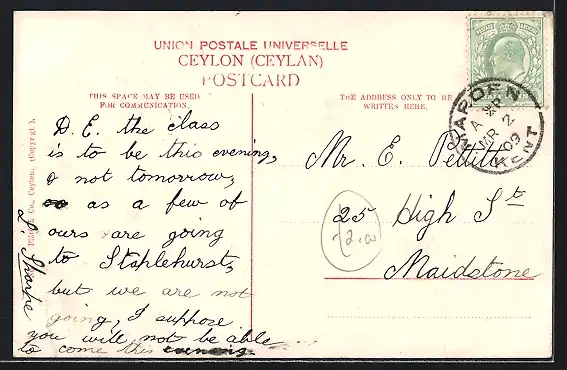 UNION POSTALE UNIVERSELLE
CEYLON (CEYLAN)
POSTCARD
THIS SPACE MAY BE USED
FOR COMMUNICATION.
THE ADDRESS ONLY TO BE
WRITTEN HERE.
D. E. the class
is to be this evening,
& not tomorrow,
as a few of
ours are going
to Staplehurst,
but we are not
going, I suppose
you will not be able
to come this evening.
L. Sharpe
& Co., Ceylon. (Copyrgt.)
Mr. E. Pettitt
25 High St
Maidstone
MARDEN
MR 2
09
KENT